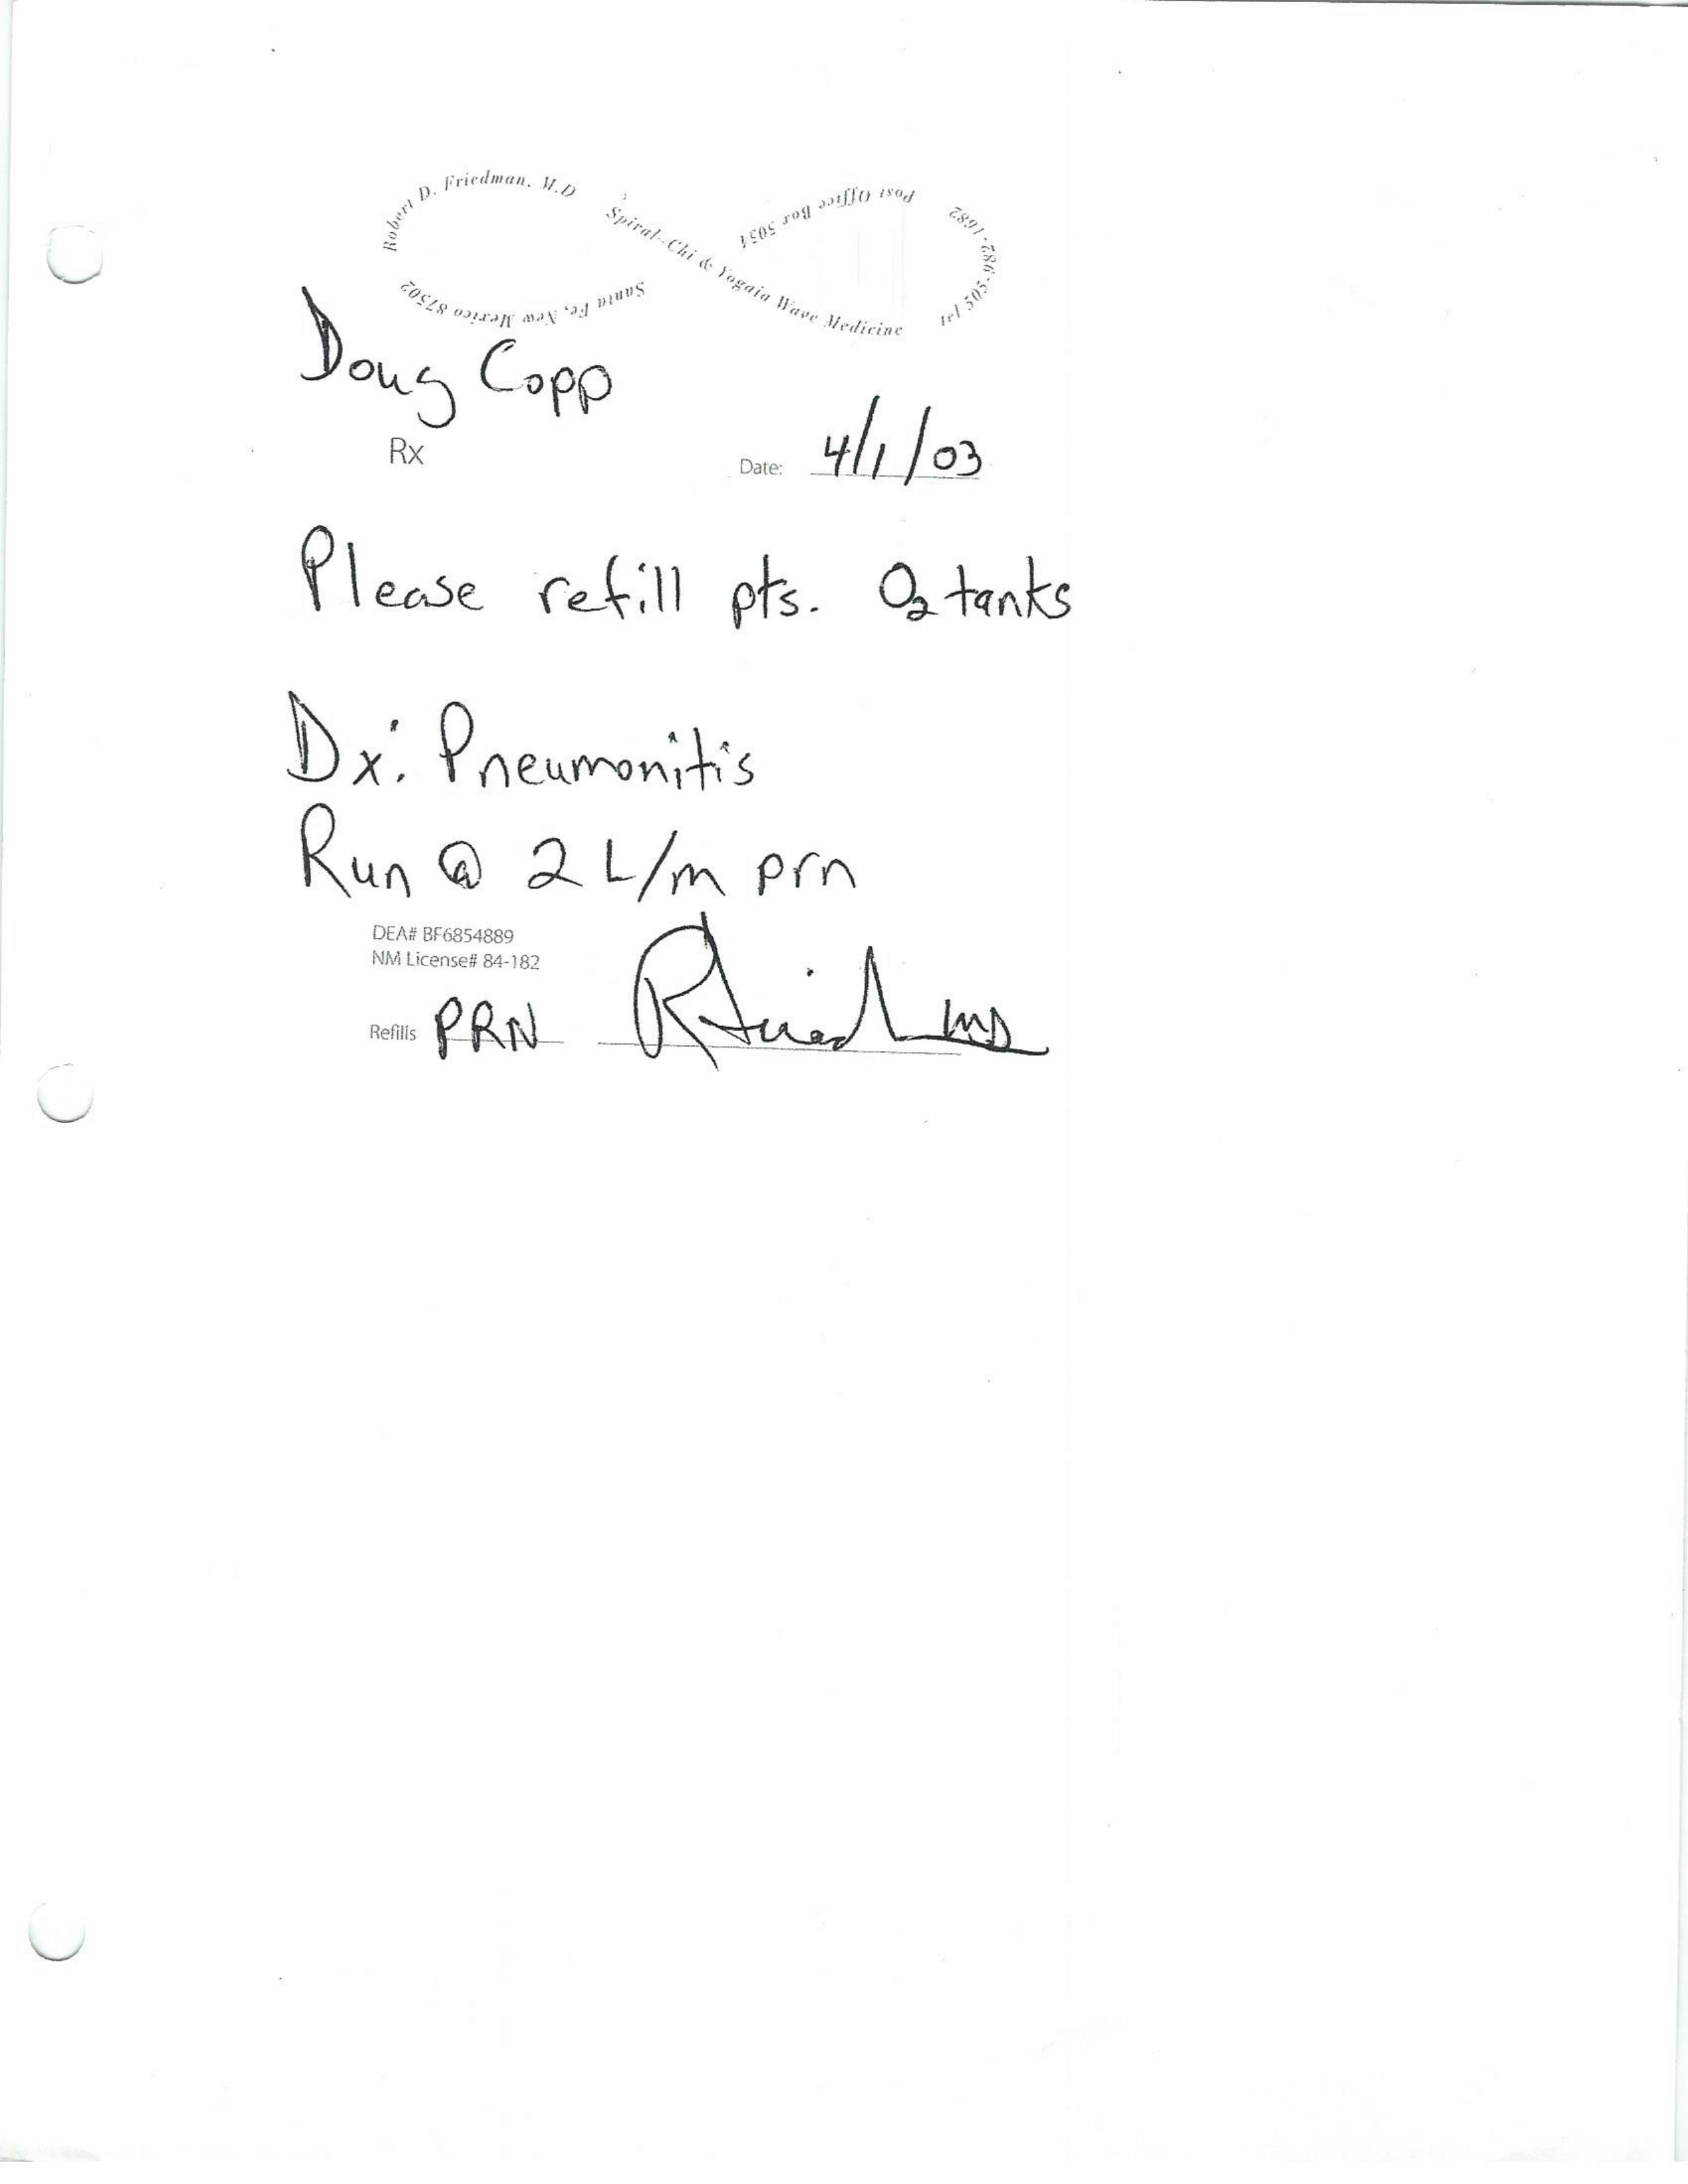 Robert D. Friedman, M.D
Spiral-Chi & Yogaia Wave Medicine
tel 505-982-1682
Post Office Box 5054
Santa Fe, New Mexico 87502
Doug Copp
Rx
Date: 4/1/03
Please refill pts. O2 tanks
Dx: Pneumonitis
Run @ 2 L/m prn
DEA# BF6854889
NM License# 84-182
Refills PRN
MD